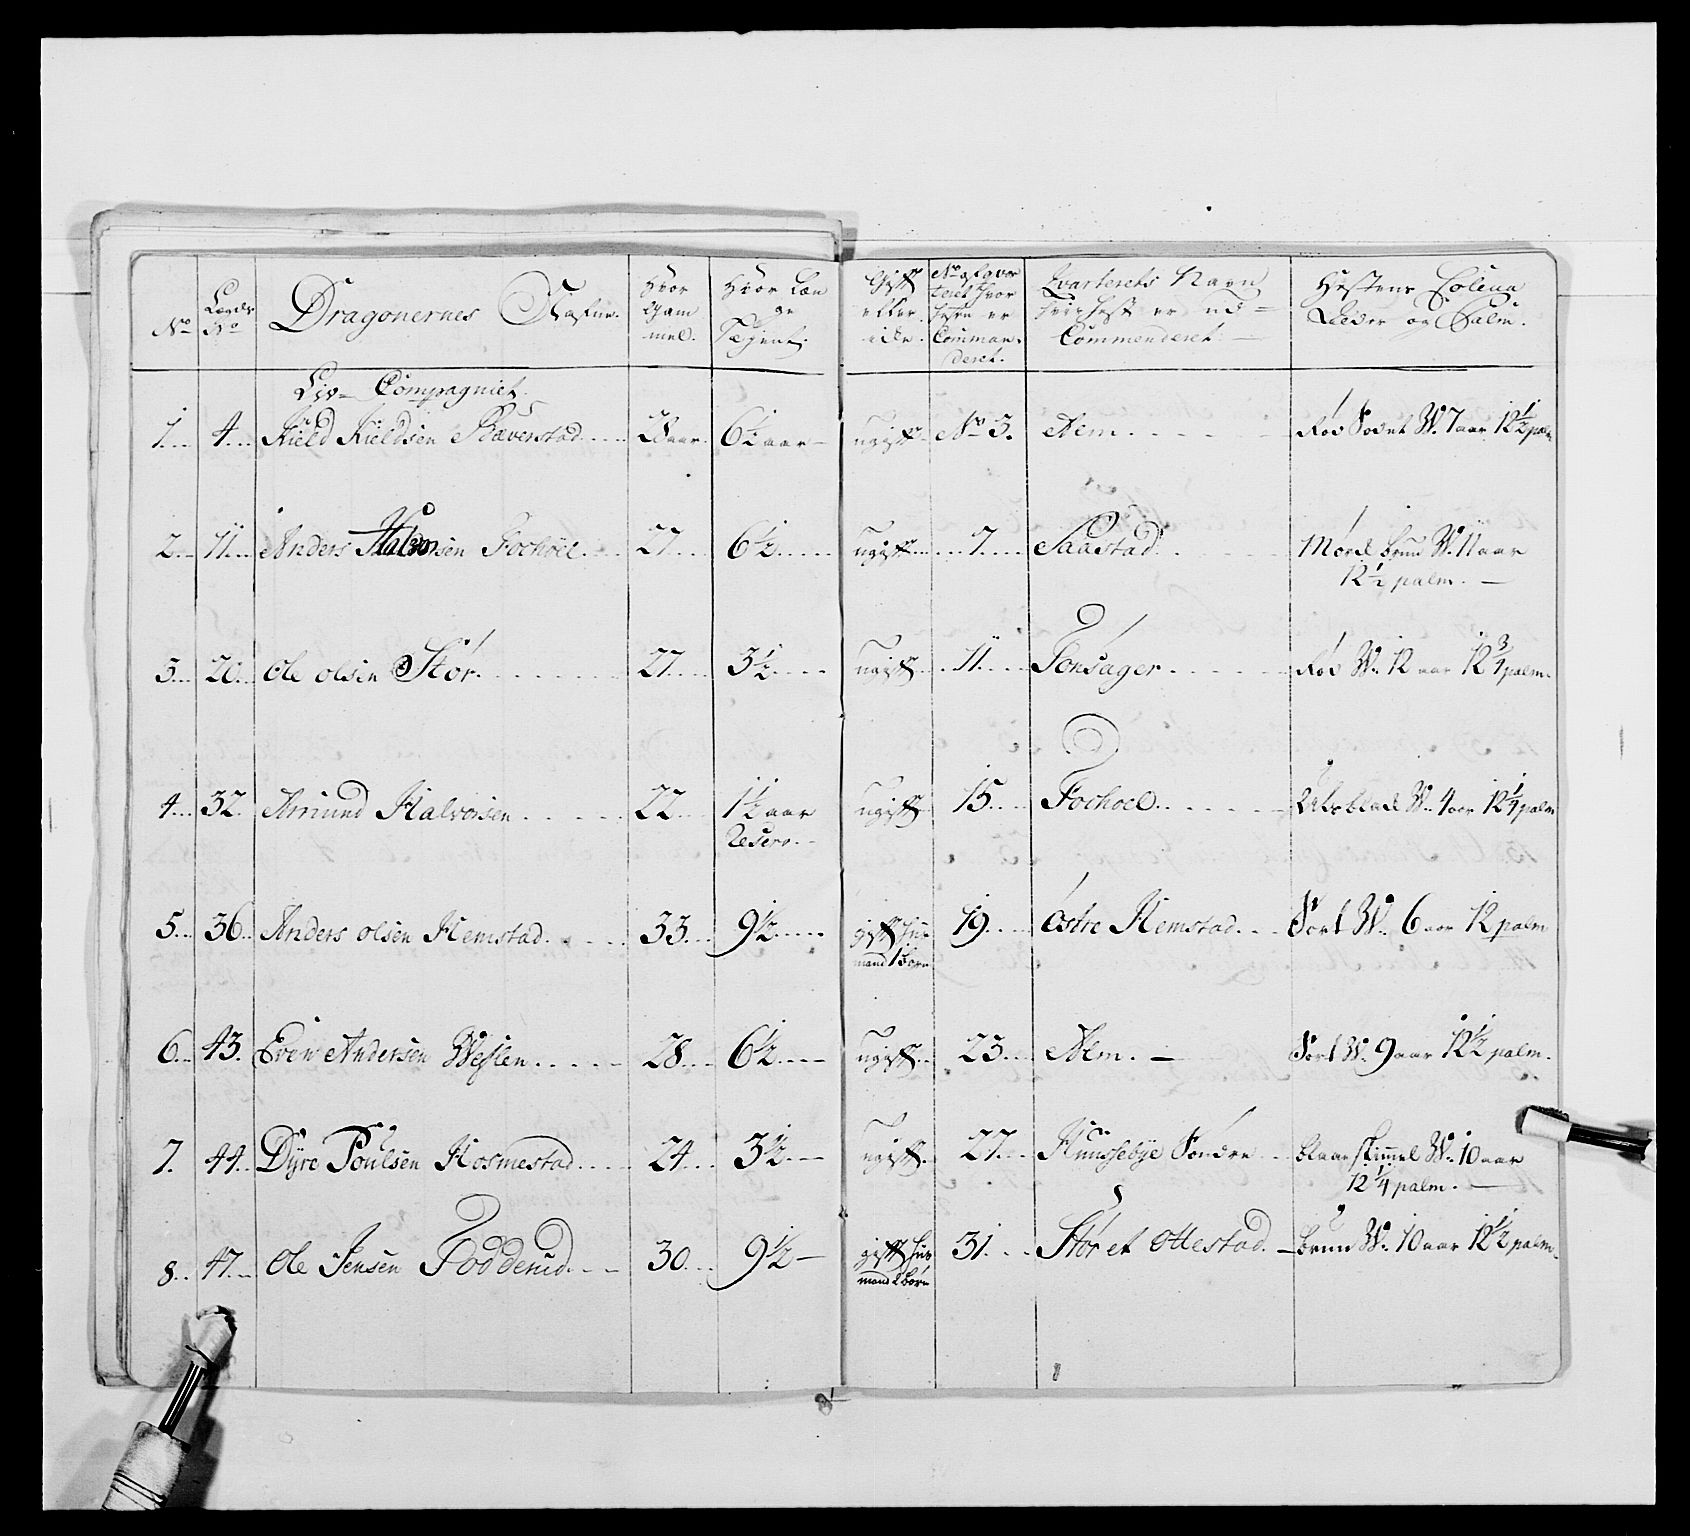 No
Lægds No
Dragonernes Nafne.
Hvor Gam mel.
Hvor Læn ge Tient.
Gift eller ikke.
No af qvar teret hvor hesten er Comman- deret.
Qvarterets Navn hvor hest er ud = Commenderet. —
Hestens Coleur Alder og Palm.
Liv= Compagniet.
1... 4... Kield Kieldsen Bæverstad.... 28 aar. 6½ aar — ugift No 3. Alem. Rød W. 7 aar 12½ palm
2... 11... Anders Halvorsen Fochoel. 27... 6½.... ugift... 7... Saastad. Mørk brun W. 11 aar
12½ palm. —
3... 20.. Ole olsen Stór. 27... 3½.... ugift.. 11.... Tonsager. Rød W. 12 aar 12¾ palm.
4... 32. Amund Halvorsen.... 22... 1½ aar ugift 15... Fochoel. W. 4 aar 12¼ palm
Reserv. —
5... 36.. Anders olsen Hemstad.... 33... 9½.... gift huus 19.... östre Hemstad... Sort W. 6 aar 12 palm
mand 1 born
6... 43. Even Andersen Weslen..... 28... 6½.... ugift.. 23... Alem. — Sort W. 9 aar 12½ palm.
7. 44.. Dyre Poulsen Hosmestad.... 24... 3½.— ugift. 27... Huusebye Søndre blaae skimmel W. 10 aar
12¼ palm. —
8.. 47... Ole Jensen Fodderud... 30... 9½ — gift huus 31... Stór et Ottestad. — brun W. 10 aar 12½ palm.
mand 2 börn